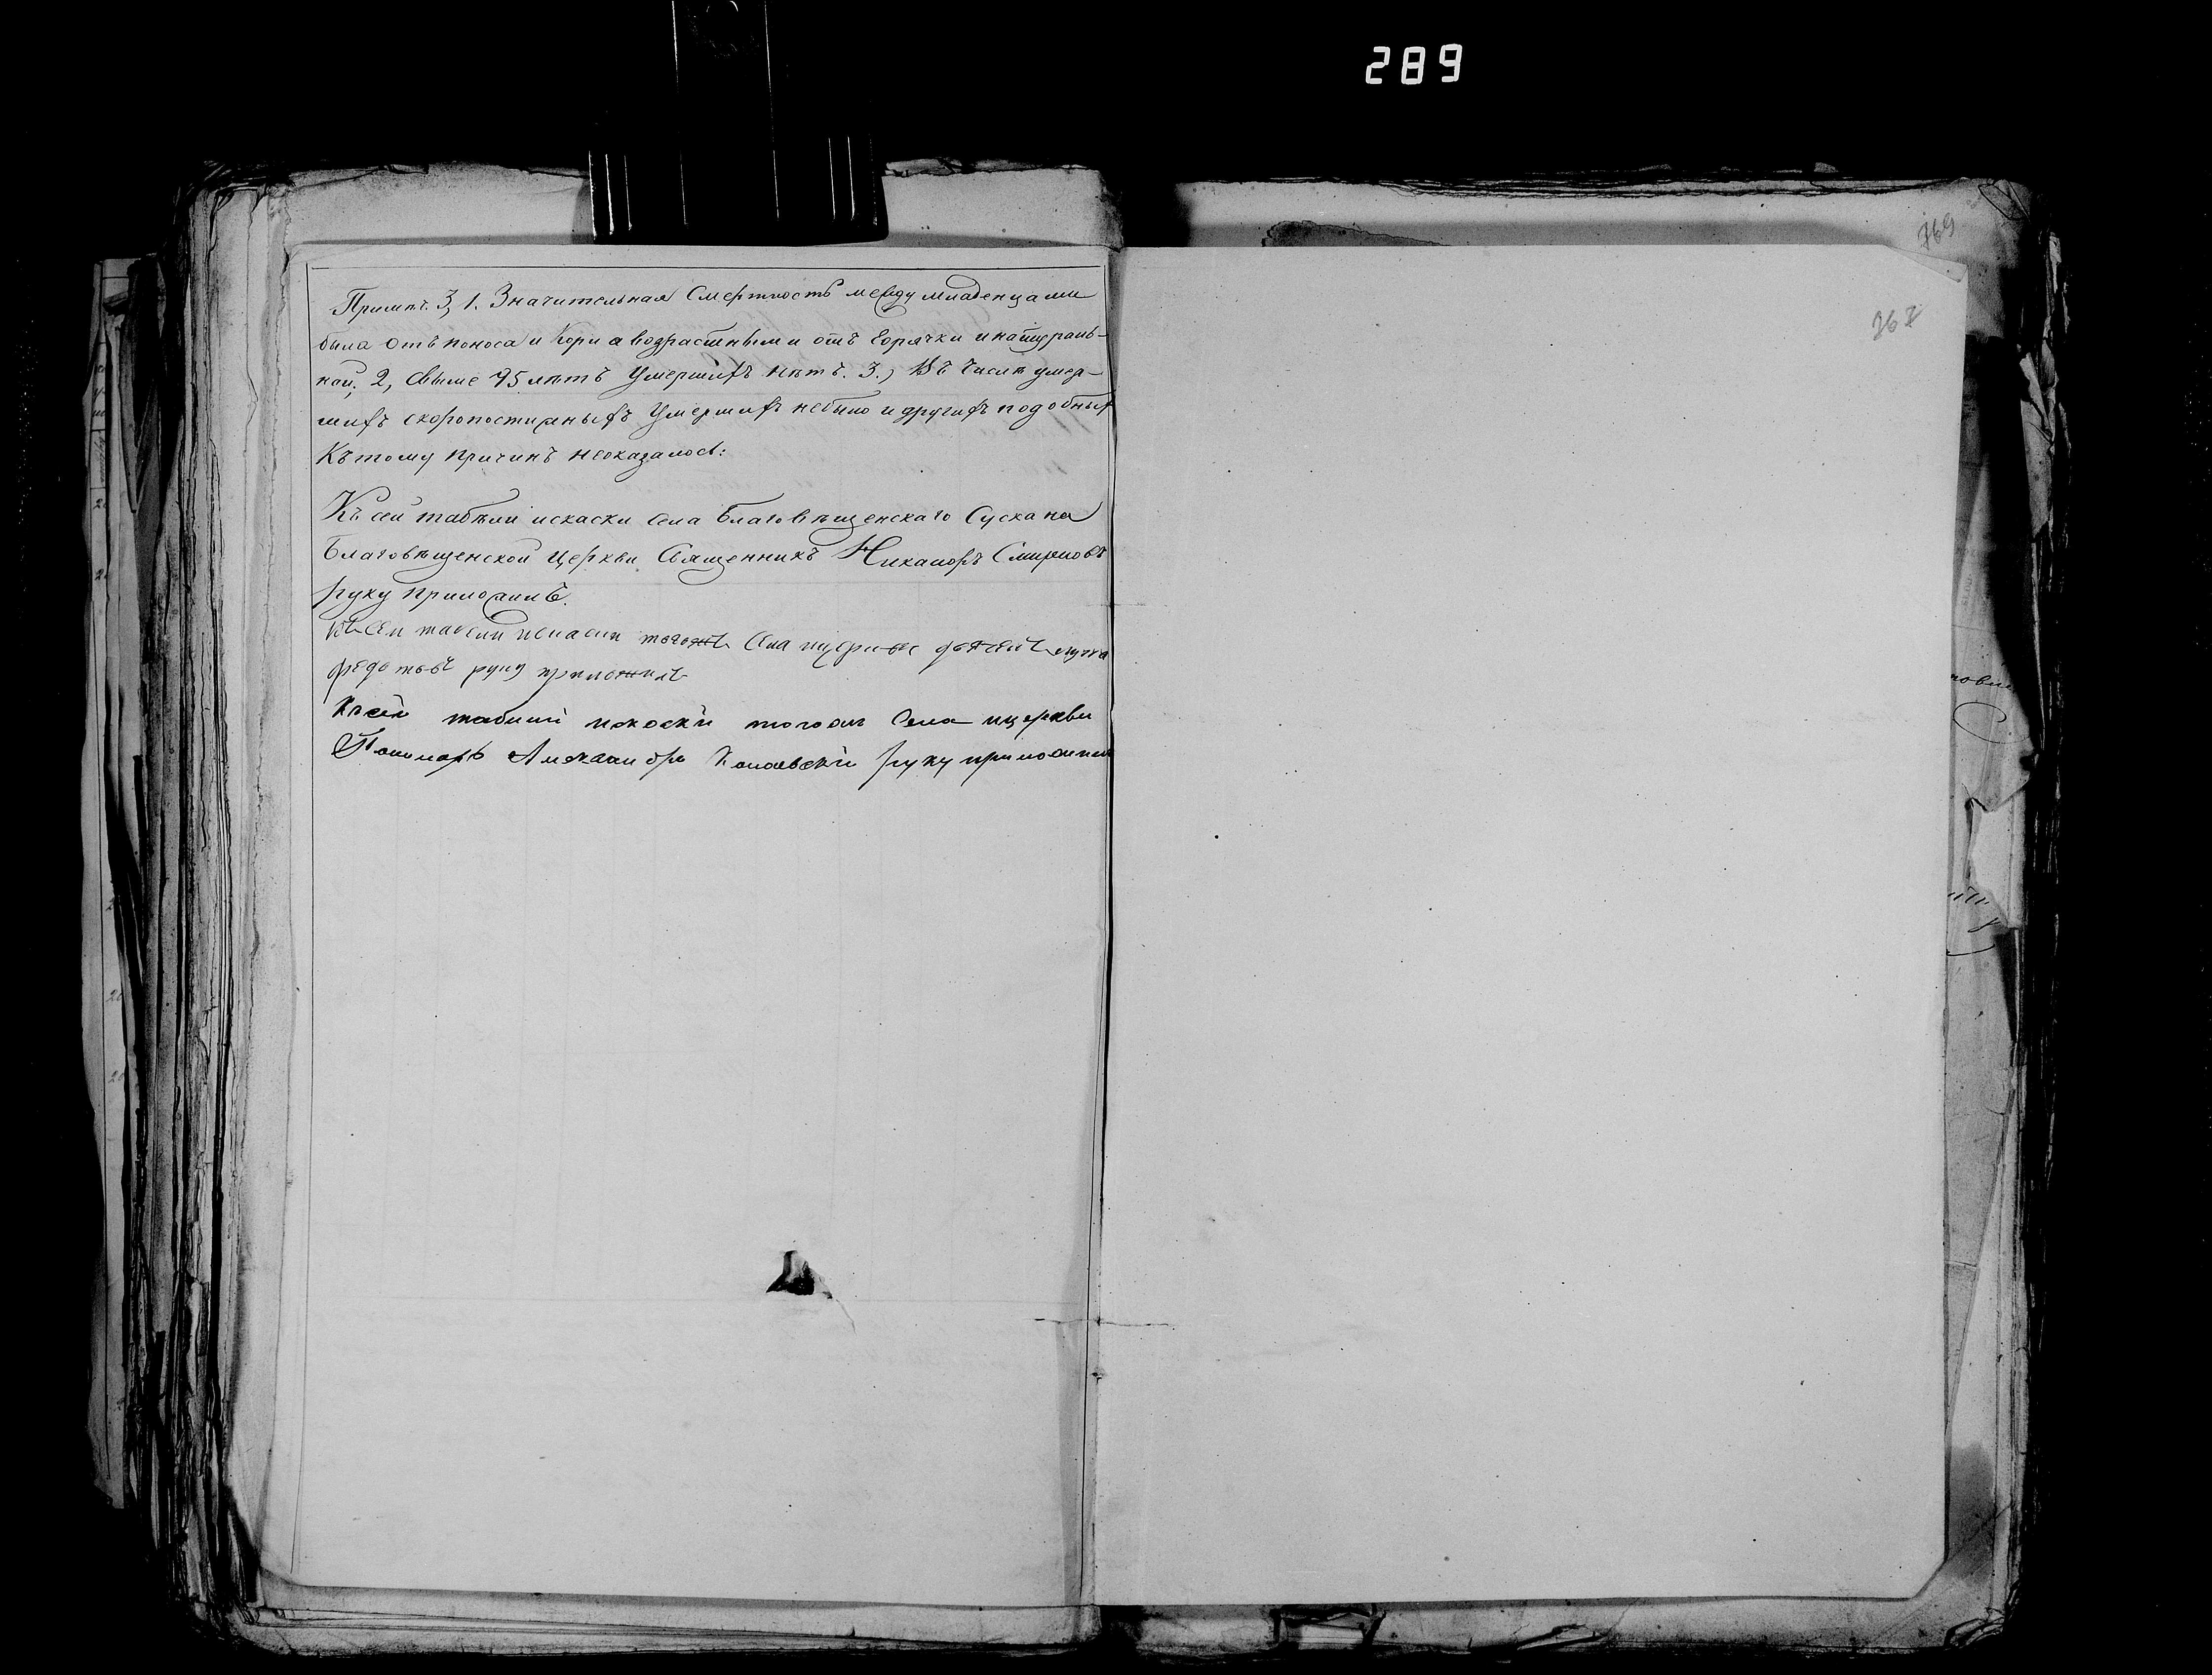 289
769
767
Примѣч. 3, 1. Значительная Смертность между младенцами
была отъ поноса и Кори а возрастными отъ Горячки и натураль-
ной. 2, Свыше 95 лѣтъ Умершихъ нѣтъ. 3.) Въ Числѣ умер-
шихъ скоропостижныхъ Умершихъ небыло и другихъ подобныхъ
Къ тому причинъ неоказалось:
Къ сей табѣли исказки Села Благовѣщенскаго Сускана
Благовѣщенской Церкви Священникъ Никаноръ Смирновъ
руку приложилъ.
Къ сей табели исказки тогожъ Села ицеркви
Федотовъ руку приложилъ
Къ сей табели исказки тогожъ Села ицеркви
Пономарь Александръ руку приложилъ